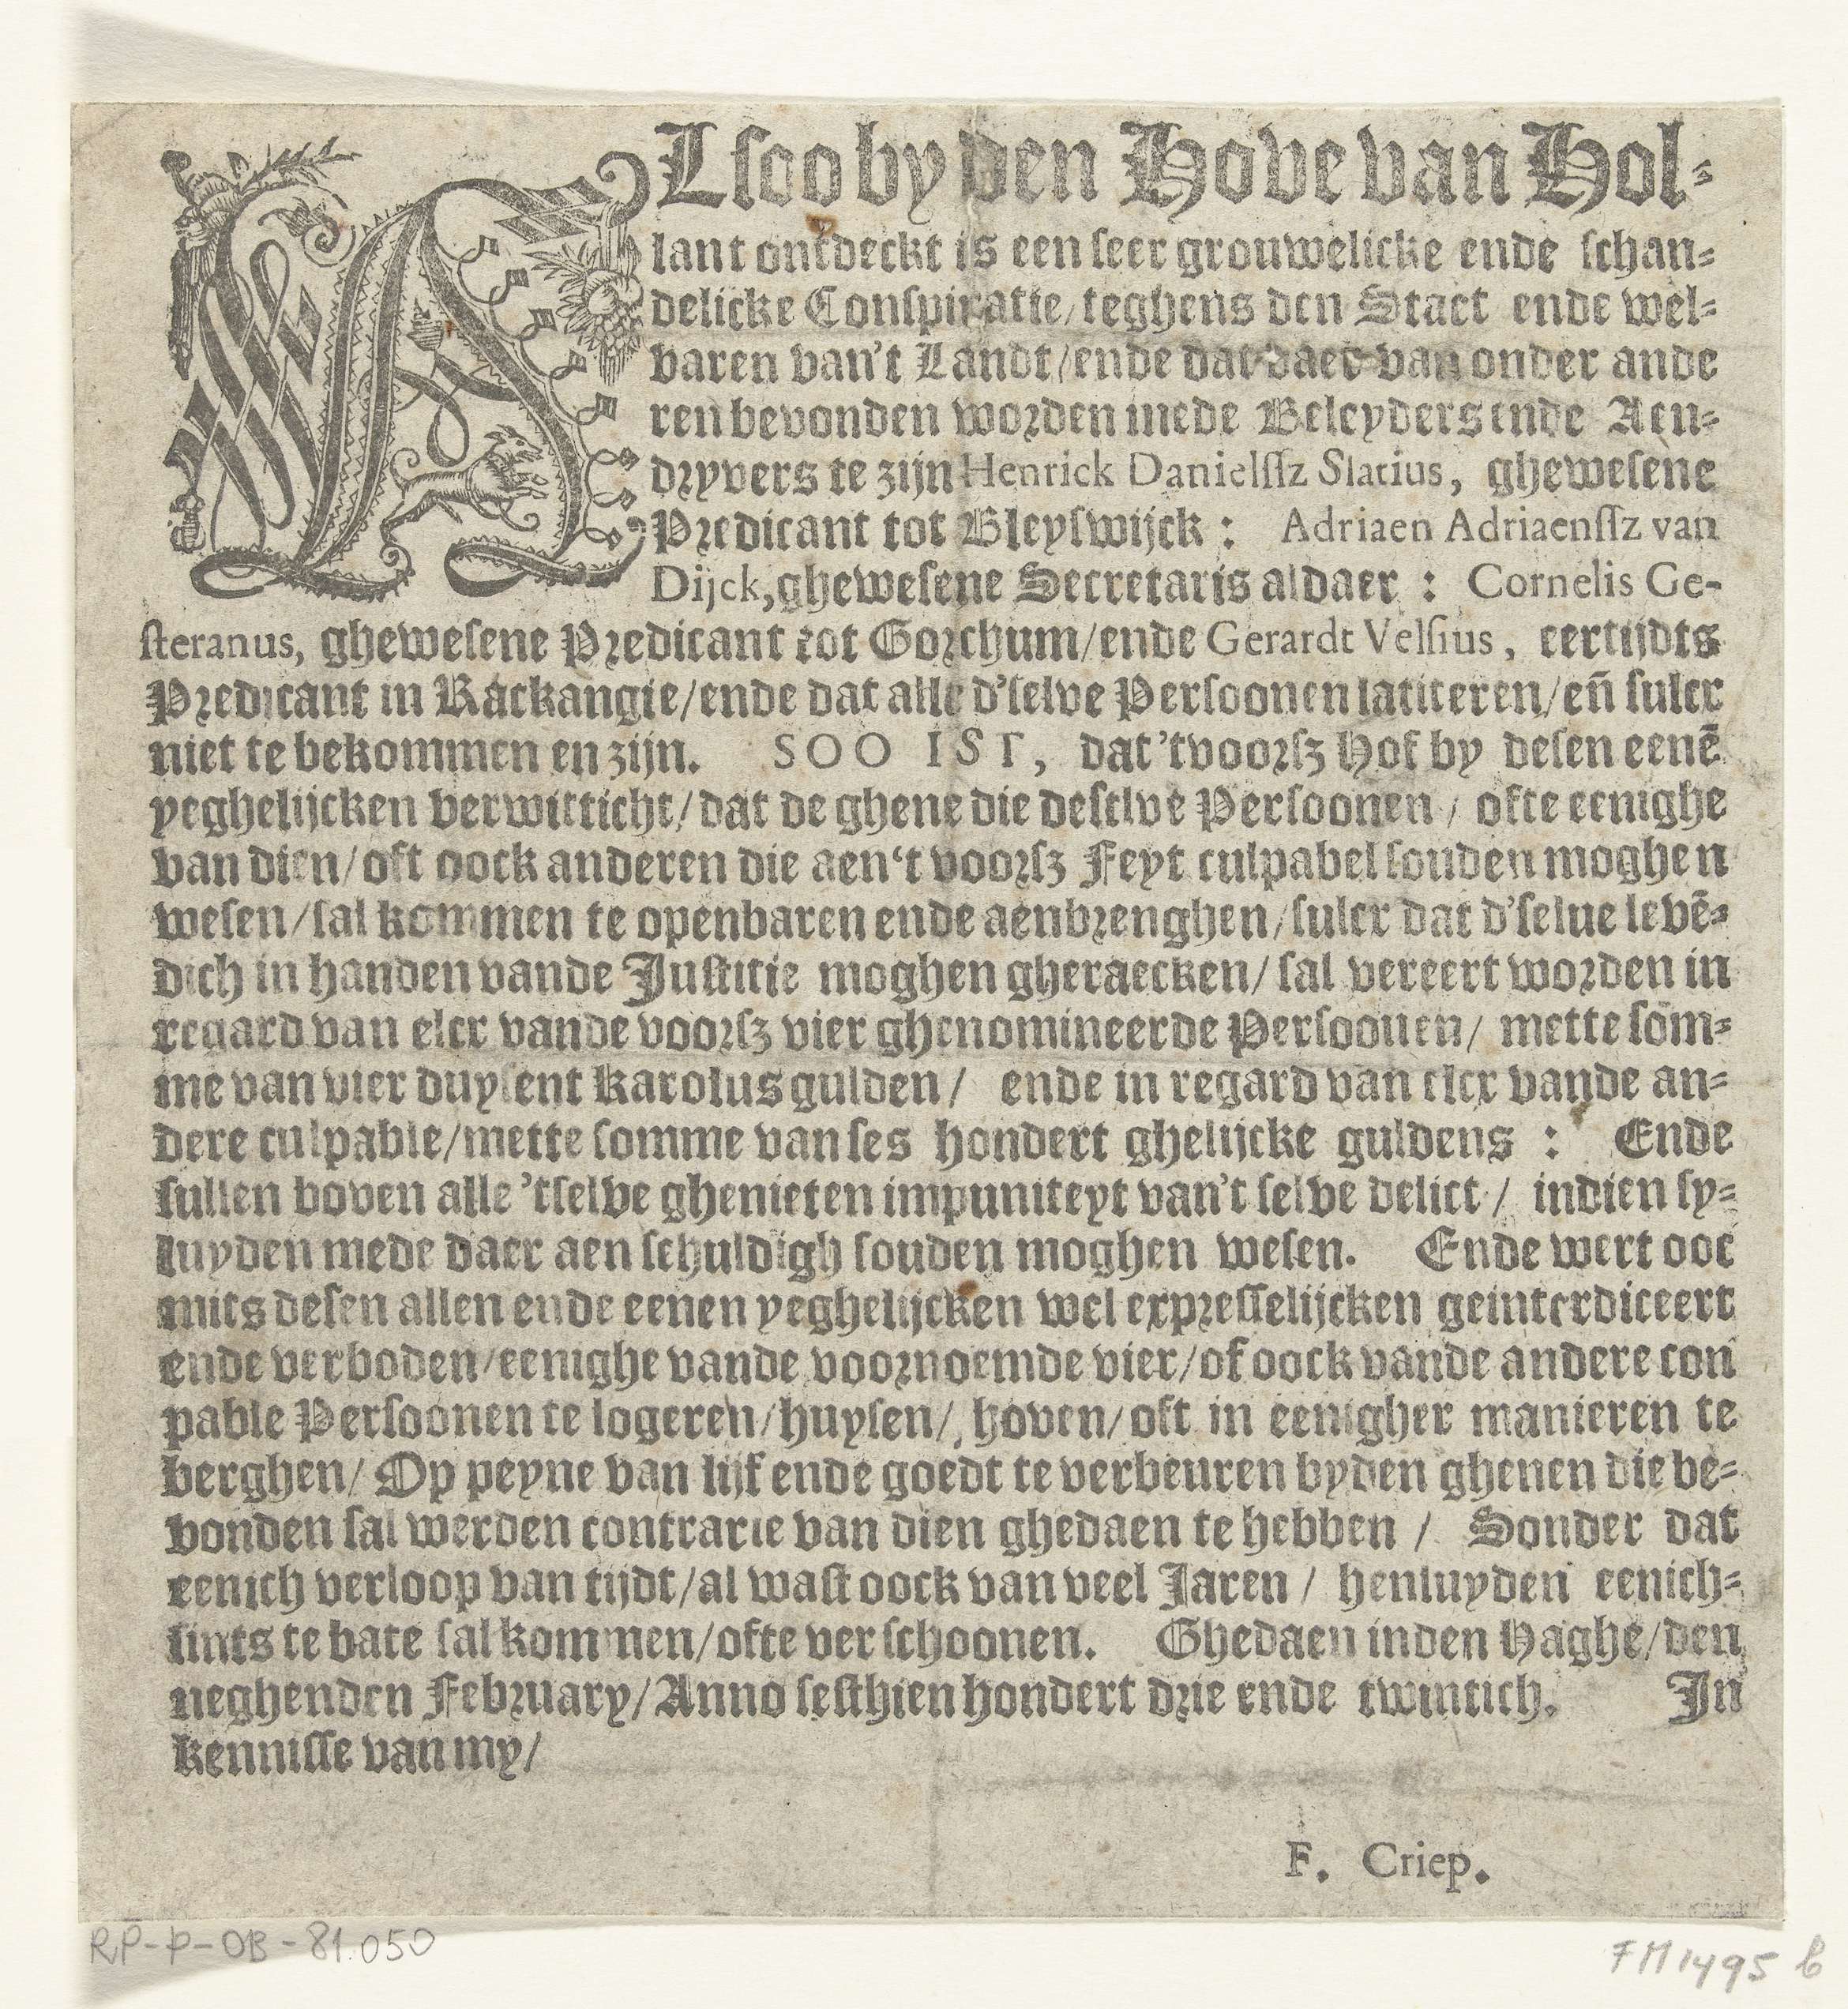 ALsoo by den Hove van Hol-
lant ontdeckt is een seer grouwelicke ende schan-
delicke Conspiratie/teghens den Staet ende wel-
varen van't Landt/ende dat daer van onder ande
ren bevonden worden mede Beleyders ende Aen-
dryvers te zijn Henrick Danielssz Slatius, ghewesene
Predicant tot Bleyswijck : Adriaen Adriaenssz van
Dijck, ghewesene Secretaris aldaer : Cornelis Ge-
steranus, ghewesene Predicant tot Gorchum/ende Gerardt Velsius, eertijdts
Predicant in Rackangie/ende dat alle d'selve Persoonen latiteren/en̄ sulcx
niet te bekommen en zijn. SOO IST, dat 'tvoorsz Hof by desen eenē
yeghelijcken verwitticht/dat de ghene die deselve Persoonen/ ofte eenighe
van dien/oft oock anderen die aen‘t voorsz Feyt culpabel souden moghen
wesen/sal kommen te openbaren ende aenbrenghen/sulcx dat d'selue levē-
dich in handen vande Justitie moghen gheraecken/ sal vereert worden in
regard van elcx vande voorsz vier ghenomineerde Persoonen/ mette som̄-
me van vier duysent Karolus gulden/ ende in regard van elcx vande an-
dere culpable/mette somme van ses hondert ghelijcke guldens : Ende
sullen boven alle 'tselve ghenieten impuniteyt van't selve delict/ indien sy-
luyden mede daer aen schuldigh souden moghen wesen. Ende wert ooc
mits desen allen ende eenen yeghelijcken wel expresselijcken geinterdiceert
ende verboden/eenighe vande voornoemde vier/of oock vande andere con
pable Persoonen te logeren/huysen/, hoven/oft in eenigher manieren te
berghen/ Op peyne van lijf ende goedt te verbeuren byden ghenen die be-
vonden sal werden contrarie van dien ghedaen te hebben / Sonder dat
eenich verloop van tijdt/al wast oock van veel Jaren / henluyden eenich-
sints te bate sal kommen/ofte verschoonen. Ghedaen inden Haghe/den
neghenden February/Anno sesthien hondert drie ende twintich. In
kennisse van my/
F. Criep.
RP-P-OB-81.050
FM 1495 b